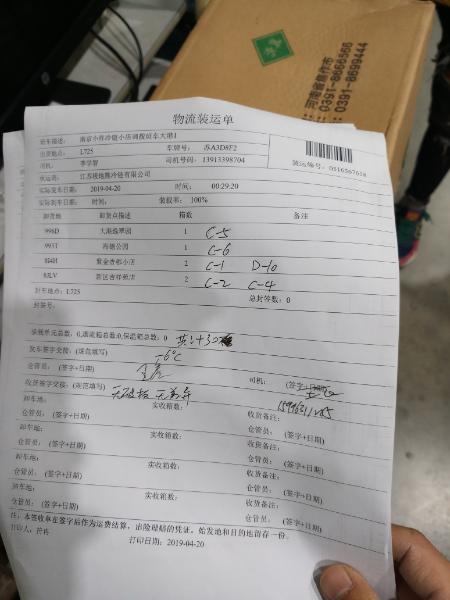 河南省焦作市
0391-8666566
0391-8699444
物流装运单
装运编号: 0516567618
班车描述: 南京小件冷链小店调拨班车大港1
出货地点: L725 车牌号: 苏A3D8F2
司机: 李学智 司机号码: 13913398704
承运商: 江苏极地熊冷链有限公司
实际发车日期: 2019-04-20 时间: 00:29:20
实际到车日期: 时间: 装载率: 100%
卸货地 卸货点描述 箱数 备注
996D 大港逸翠园 1 C-5
993T 海德公园 1 C-6
8H4H 紫金香郡小店 2 C-1 D-10
83LV 新区吉祥苑店 2 C-2 C-4
封车地点: L725 总封签数: 0
封签号:
承载单元总数: 0,周转箱总数:0,保温箱总数: 0
发车签字交接: (规范填写) -6℃
仓管员: (签字+日期) 司机: (签字+日期)
收货签字交接: (规范填写) 无破损 无差异
卸车地: 实收箱数: 收货备注:
仓管员: (签字+日期) 仓管员: (签字+日期)
卸车地: 实收箱数: 收货备注:
仓管员: (签字+日期) 仓管员: (签字+日期)
卸车地: 实收箱数: 收货备注:
仓管员: (签字+日期) 仓管员: (签字+日期)
卸车地: 实收箱数: 收货备注:
仓管员: (签字+日期) 仓管员: (签字+日期)
注: 本签收单在签字后作为运费结算，出险理赔的凭证。始发地和目的地留存一份。
打印人: 许冉 打印日期: 2019-04-20